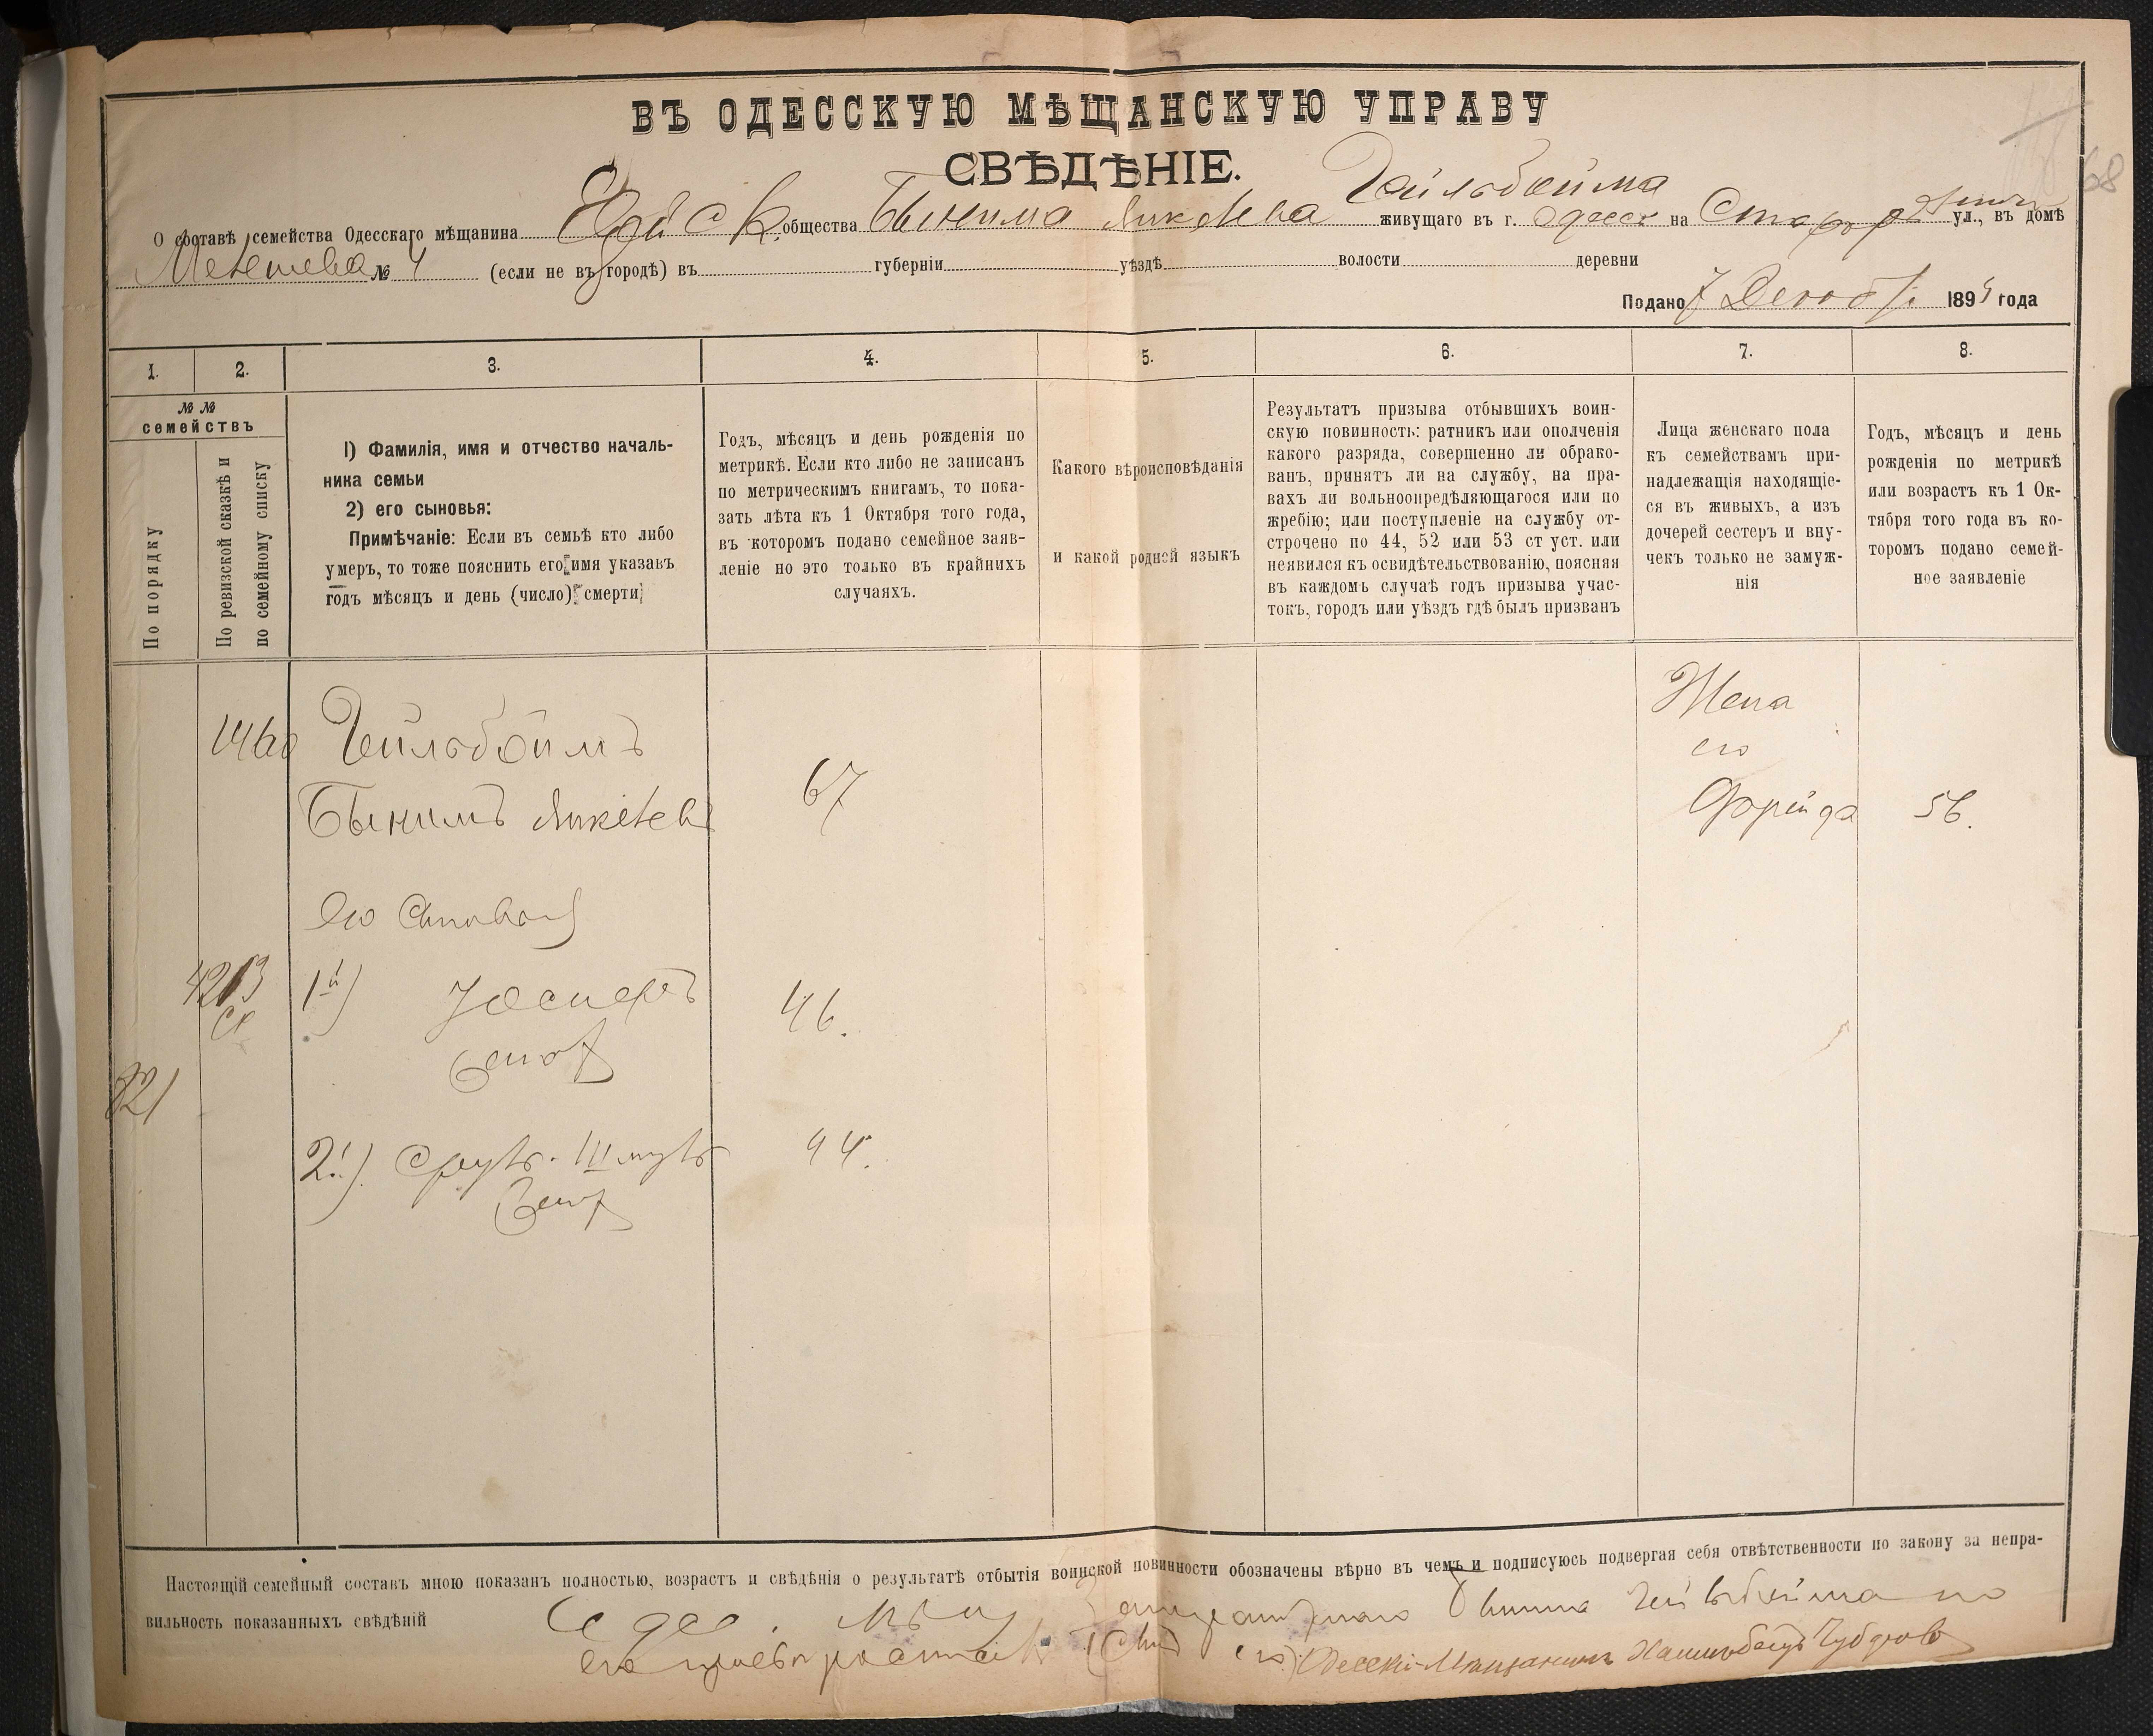 ВЪ ОДЕССКУЮ МѢЩАНСКУЮ УПРАВУ
СВѢДѢНІЕ.
68
О составѣ семейства Одесскаго мѣщанина общества Бынима Гейльбойма живущаго въ г. Одессѣ на ул., въ домѣ
№ 4 (если не въ городѣ) въ губерніи уѣздѣ волости деревни
Подано 7 189 года
1. 2. 3. 4. 5. 6. 7. 8.
№ №
семействъ
По порядку
По ревизской сказкѣ и
по семейному списку
1) Фамилія, имя и отчество началь-
ника семьи
2) его сыновья:
Примѣчаніе: Если въ семьѣ кто либо
умеръ, то тоже пояснить его имя указавъ
годъ мѣсяцъ и день (число) смерти
Годъ, мѣсяцъ и день рожденія по
метрикѣ. Если кто либо не записанъ
по метрическимъ книгамъ, то пока-
зать лѣта къ 1 Октября того года,
въ которомъ подано семейное заяв-
леніе но это только въ крайнихъ
случаяхъ.
Какого вѣроисповѣданія
и какой родной языкъ
Результатъ призыва отбывшихъ воин-
скую повинность: ратникъ или ополченія
какого разряда, совершенно ли обрако-
ванъ, принятъ ли на службу, на пра-
вахъ ли вольноопредѣляющагося или по
жребію; или поступленіе на службу от-
строчено по 44, 52 или 53 ст уст. или
неявился къ освидѣтельствованію, поясняя
въ каждомъ случаѣ годъ призыва учас-
токъ, городъ или уѣздъ гдѣ былъ призванъ
Лица женскаго пола
къ семействамъ при-
надлежащія находящіе-
ся въ живыхъ, а изъ
дочерей сестеръ и вну-
чекъ только не замуж-
нія
Годъ, мѣсяцъ и день
рожденія по метрикѣ
или возрастъ къ 1 Ок-
тября того года въ ко-
торомъ подано семей-
ное заявленіе
Гейльбоймъ
Бынимъ
67
Жена
его
Фрейда
56.
Его Сыновья
4213
1й)
Іосифъ
46.
821
2й) Сруль-Шмуль
44.
Настоящій семейный составъ мною показанъ полностью, возрастъ и свѣдѣнія о результатѣ отбытія воинской повинности обозначены вѣрно въ чемъ и подписуюсь подвергая себя отвѣтственности по закону за непра-
вильность показанныхъ свѣдѣній
Бынима Гейльбойма по
его Одесскій Мѣщанинъ